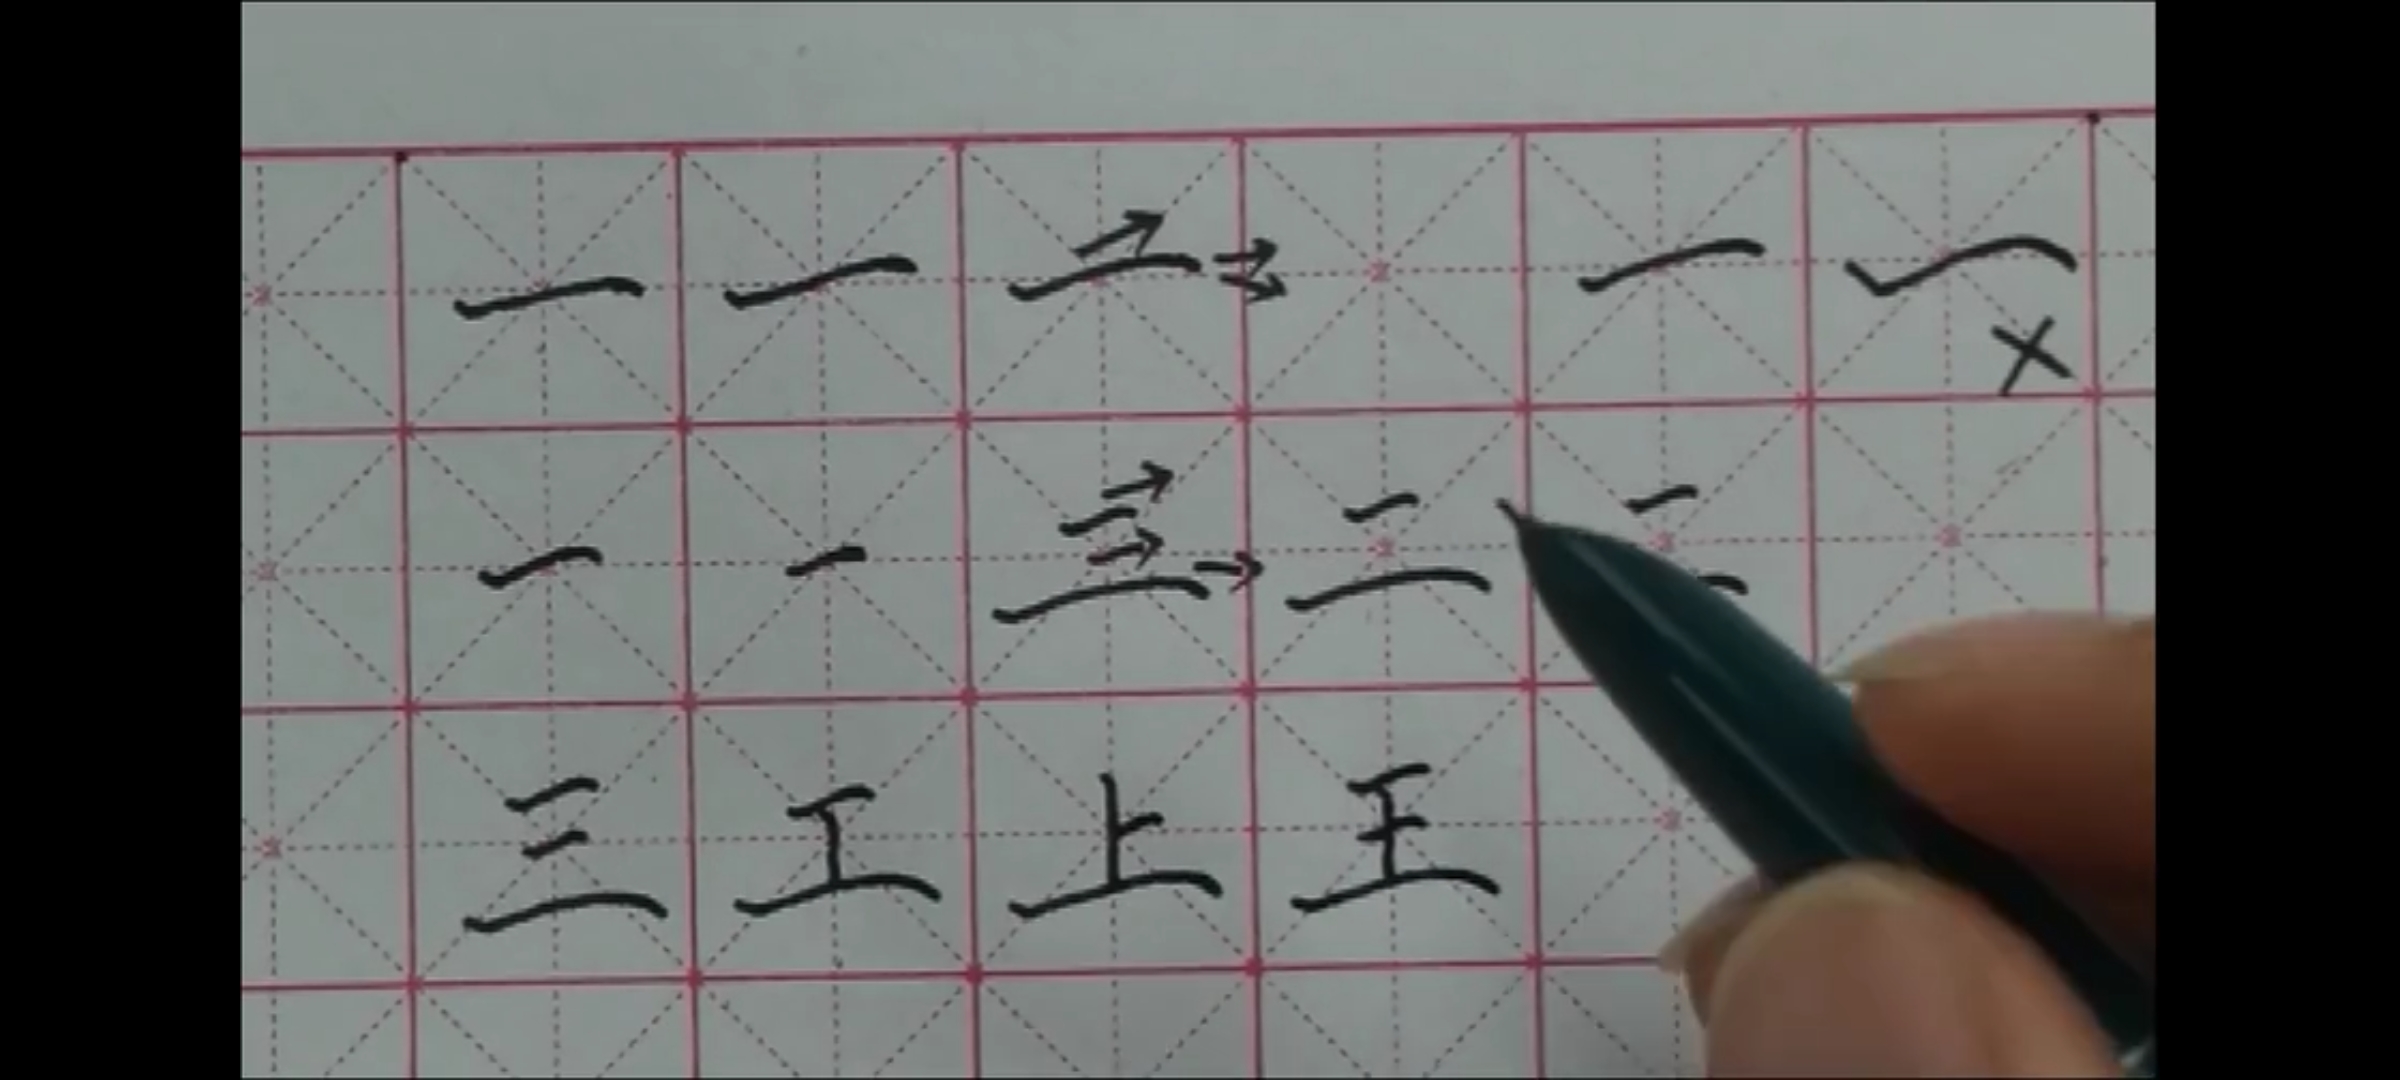 一 一 一 一 一 ×
一 一 二 二 二
三 工 上 王